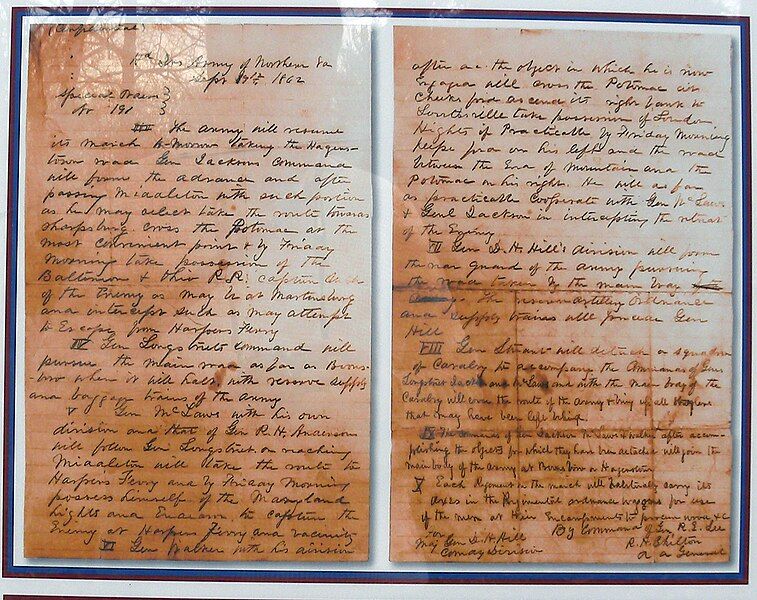 (Confidential)
Hd Qrs Army of Northern Va
Sept 9th 1862
Special Orders }
No 191 }
III The Army will resume
its march to-morrow taking the Hagers-
town road. Gen Jacksons Command
will form the advance and after
passing Middleton with such portion
as he may select take the route towards
Sharpsburg. cross the Potomac at the
most convenient point & by Friday
morning take possession of the
Baltimore & Ohio R.R. capture such
of the Enemy as may be at Martinsburg
and intercept such as may attempt
to Escape from Harpers Ferry
IV Gen Longstreets command will
pursue the main road as far as Boons-
boro where it will halt, with reserve supply
and baggage trains of the army
V Gen McLaws with his own
division and that of Gen R. H. Anderson
will follow Gen Longstreet on reaching
Middleton will take the route to
Harpers Ferry and by Friday Morning
possess himself of the Maryland
hights and Endeavor to capture the
Enemy at Harpers Ferry and vacinity
VI Gen Walker with his division
after the object in which he is now
Engaged will cross the Potomac at
Cheeks ford ascend its right bank to
Lovettsville take possession of Loudon
Hights if Practicable by Friday Morning
Keyes ford on his left and the road
between the End of Mountain and the
Potomac on his right. He will as far
as practicable Cooperate with Gen McLaws
& Genl Jackson in intercepting the retreat
of the Enemy
VII Gen D. H. Hill's division will form
the rear guard of the Army pursuing
the road taken by the main body
The reserve artillery Ordnance
and supply trains will precede Gen
Hill
VIII Gen Stuart will detach a squadron
of Cavalry to accompany the Commands of Gens
Longstreet Jackson and McLaws and with the main body of the
Cavalry will cover the route of the Army & bring up all stragglers
that may have been left behind
IX The commands of Gen Jackson McLaws & Walker after accom-
plishing the objects for which they have been detached will join the
main body of the Army at Boonsboro or Hagerstown
X Each Regiment on the march will habitually carry its
axes in the Regimental ordnance wagons for use
of the men at their Encampments to procure wood &c
By Command of Gen R. E. Lee
For
Maj Gen D. H. Hill R. H. Chilton
Comdg Division A A General